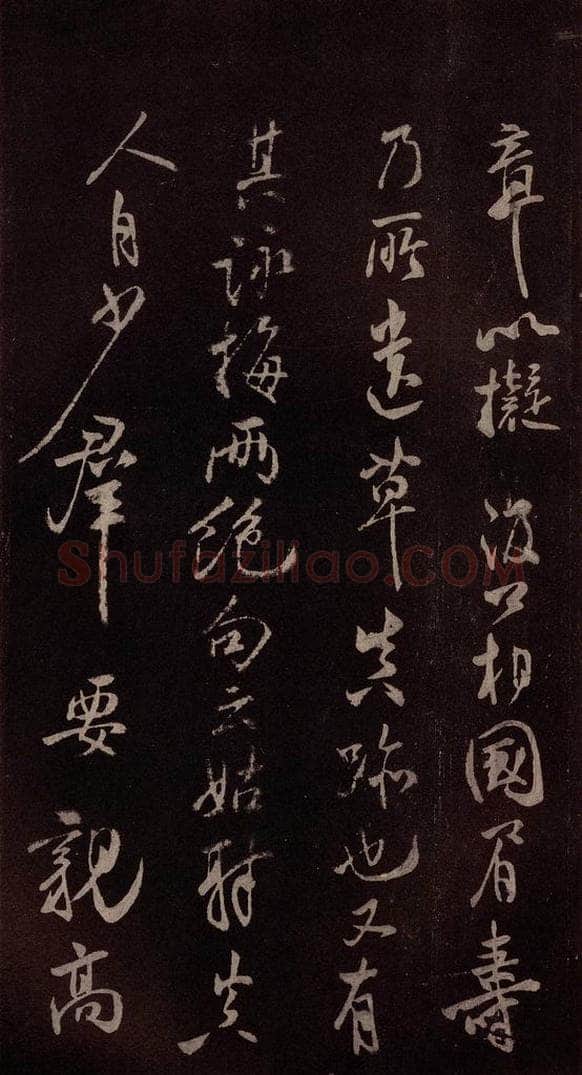 章以擬 公相國眉壽
乃所遺草真跡也又有
其詠梅兩絕句云姑射真
人自少羣要親高
Shufaziliao.COM